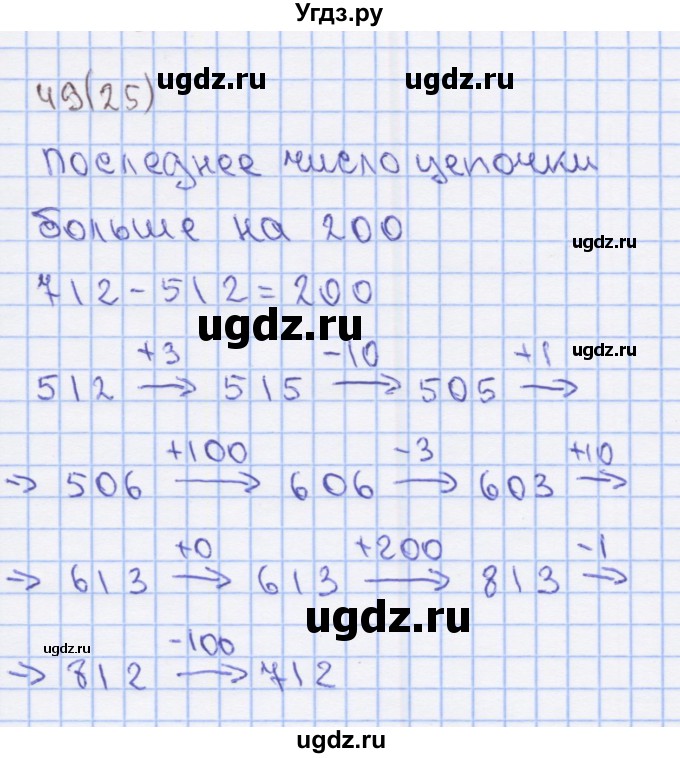 Угдз.ру
ugdz.ru ugdz.ru
49(25)
последнее число цепочки
больше на 200
ugdz.ru
712-512=200
ugdz.ru
+3 -10 +1 ugdz.ru
512 → 515 → 505 →
+100 -3 +10
→ 506 → 606 → 603 →
+0 +200 -1
→ 613 → 613 → 813 →
ugdz.ru
ugdz.ru -100
→ 812 → 712
ugdz.ru